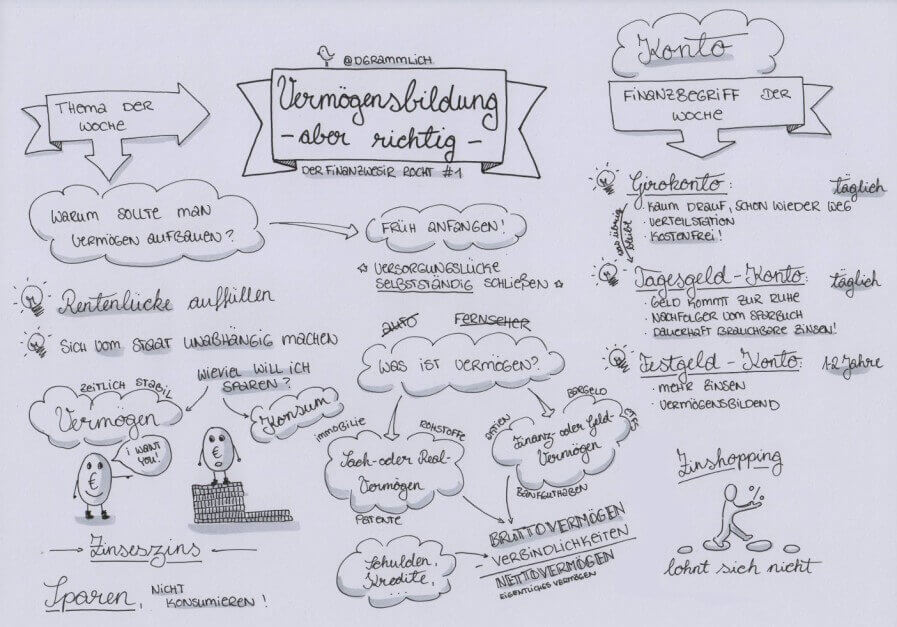 @DGRAMMLICH
Vermögensbildung
- aber richtig -
DER FINANZWESIR ROCKT #1
THEMA DER
WOCHE
WARUM SOLLTE MAN
VERMÖGEN AUFBAUEN?
FRÜH ANFANGEN!
☆ VERSORGUNGSLÜCKE
SELBSTSTÄNDIG SCHLIEßEN ☆
Rentenlücke auffüllen
SICH VOM STAAT UNABHÄNGIG MACHEN
WIEVIEL WILL ICH
SPAREN?
ZEITLICH STABIL
Vermögen
Konsum
I WANT
YOU!
€
€
Zinseszins
Sparen, NICHT
KONSUMIEREN!
AUTO FERNSEHER
WAS IST VERMÖGEN?
IMMOBILIE
ROHSTOFFE
Sach- oder Real-
Vermögen
PATENTE
AKTIEN
BARGELD
ETFS
Finanz- oder Geld-
Vermögen
BANKGUTHABEN
Schulden,
Kredite, ...
BRUTTOVERMÖGEN
- VERBINDLICHKEITEN
NETTOVERMÖGEN
EIGENTLICHES VERMÖGEN
Konto
FINANZBEGRIFF DER
WOCHE
Girokonto: täglich
· KAUM DRAUF, SCHON WIEDER WEG
· VERTEILSTATION
· KOSTENFREI!
was übrig
bleibt
Tagesgeld-Konto: täglich
· GELD KOMMT ZUR RUHE
· NACHFOLGER VOM SPARBUCH
· DAUERHAFT BRAUCHBARE ZINSEN!
Festgeld-Konto: 1-2 Jahre
· MEHR ZINSEN
· VERMÖGENSBILDEND
Zinshopping
%
lohnt sich nicht